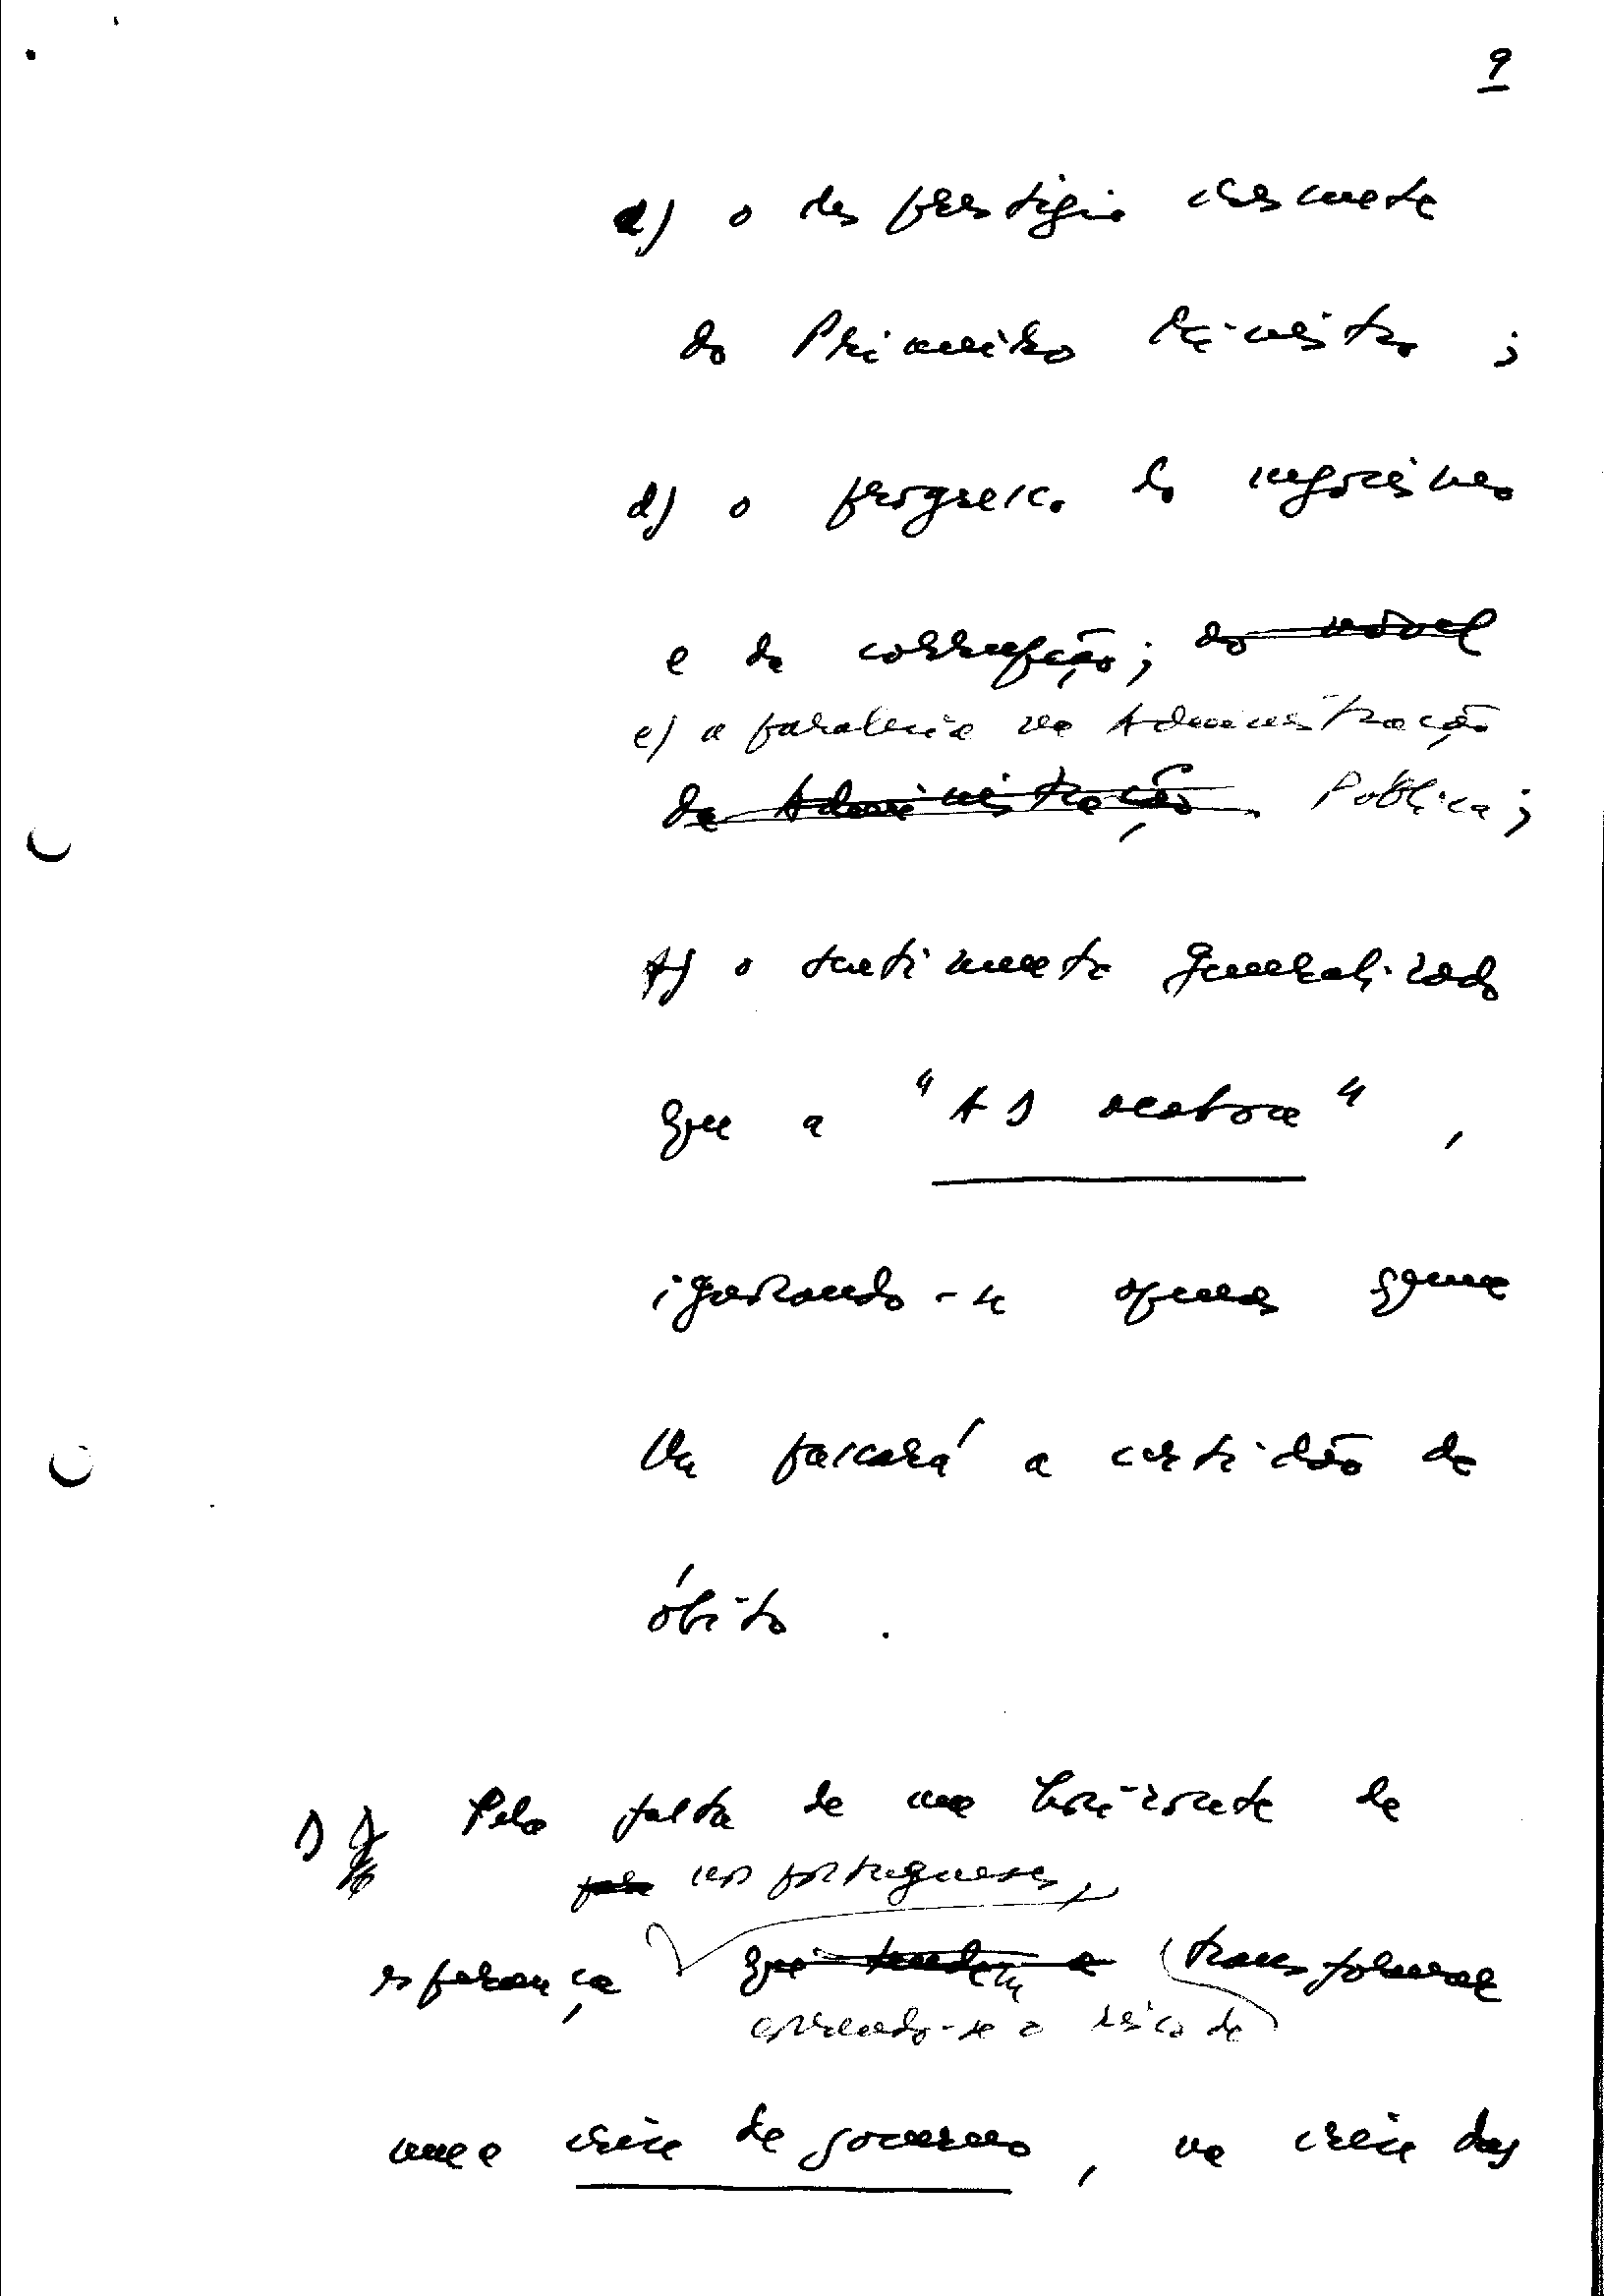 9
c) o desprestígio crescente
do Primeiro Ministro ;
d) o progresso do negocismo
e da corrupção; do nóvel
e) a paralisia na Administração
da Administração Pública;
f) o sentimento generalizado
que a "AD acabou",
ignorando-se apenas quem
lhe passará a certidão de
óbito .
Pela falta de um horizonte de
pela nos portugueses,
esperança que tende a transformar
correndo-se o risco de
uma crise de governo, na crise das